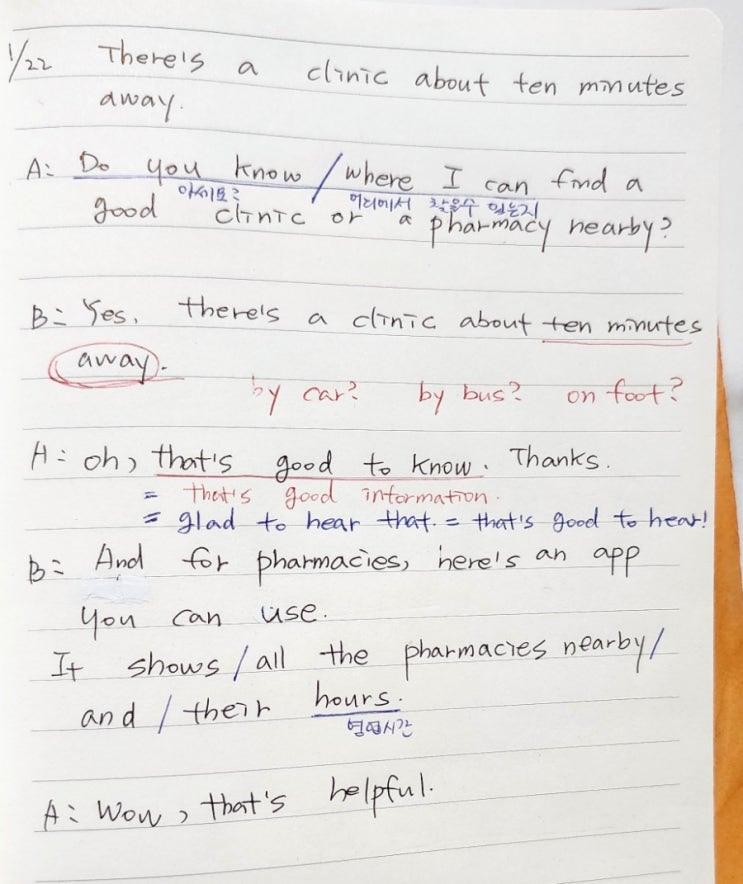 1/22 There's a clinic about ten minutes
away.
A: Do you know / where I can find a
아시나요? 어디에서 찾을수 있는지
good clinic or a pharmacy nearby?
B: Yes, there's a clinic about ten minutes
away.
by car? by bus? on foot?
A: oh, that's good to know. Thanks.
= that's good information.
= glad to hear that. = that's good to hear!
B: And for pharmacies, here's an app
you can use.
It shows / all the pharmacies nearby /
and / their hours.
영업시간
A: Wow, that's helpful.